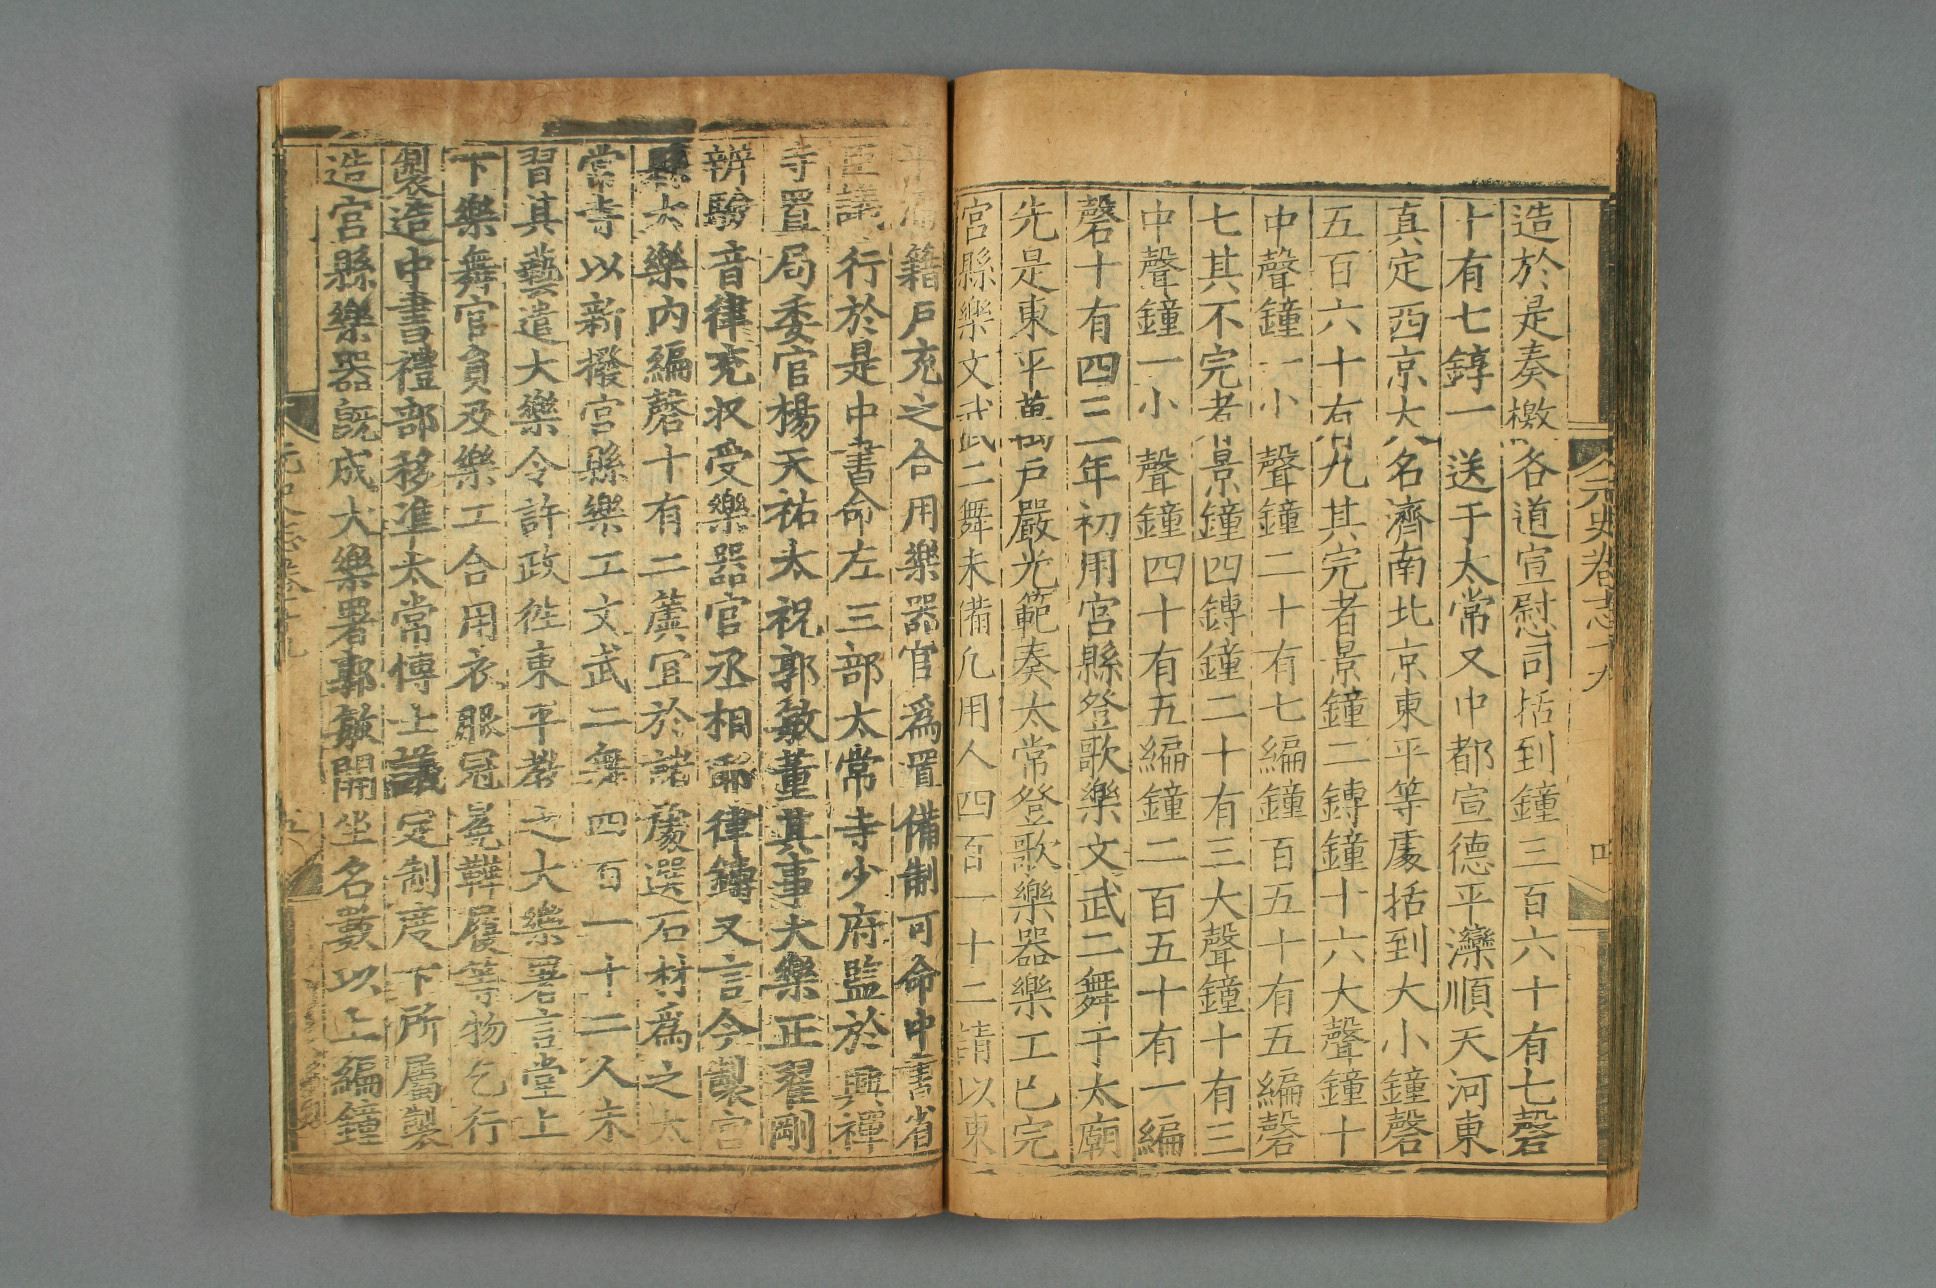 元史卷志十九
造於是奏檄各道宣慰司括到鐘三百六十有七磬
十有七錞一送于太常又中都宣德平灤順天河東
真定西京大名濟南北京東平等處括到大小鐘磬
五百六十有九其完者景鐘二鎛鐘十六大聲鐘十
中聲鐘一小聲鐘二十有七編鐘百五十有五編磬
七其不完者景鐘四鎛鐘二十有三大聲鐘十有三
中聲鐘一小聲鐘四十有五編鐘二百五十有一編
磬十有四三年初用宮縣登歌樂文武二舞于太廟
先是東平萬戶嚴光範奏太常登歌樂器樂工已完
宮縣樂文武二舞未備凡用人四百一十二請以東
平漏籍戶充之合用樂器官爲置備制可命中書省
臣議行於是中書命左三部太常寺少府監於興禪
寺置局委官楊天祐太祝郭敏董其事大樂正翟剛
辨驗音律充收受樂器官丞相耶律鑄又言今製宮
縣大樂內編磬十有二簴宜於諸處選石材爲之太
常寺以新撥宮縣樂工文武二舞四百一十二人未
習其藝遣大樂令許政往東平教之大樂署言堂上
下樂舞官員及樂工合用衣服冠冕鞾履等物乞行
製造中書禮部移准太常博士議定制度下所屬製
造宮縣樂器旣成大樂署郭敏開坐名數以上編鐘